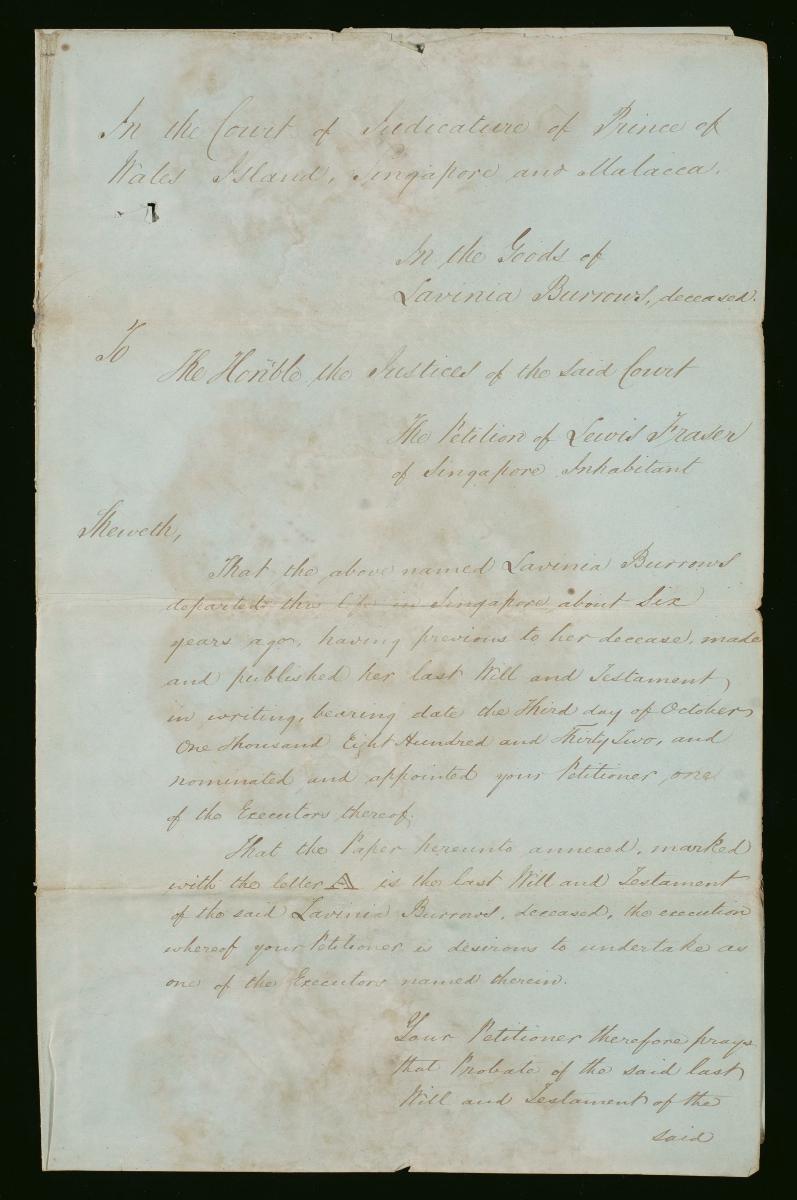 In the Court of Judicature of Prince of
Wales Island, Singapore and Malacca.
In the Goods of
Lavinia Burrows, deceased.
To
The Honble the Justices of the said Court
The Petition of Lewis Fraser
of Singapore Inhabitant
Sheweth,
That the above named Lavinia Burrows
departed this life in Singapore about Six
years ago, having previous to her decease, made
and published her last Will and Testament,
in writing, bearing date the Third day of October,
One Thousand Eight Hundred and Thirty Two, and
nominated and appointed your Petitioner one
of the Executors thereof.
That the Paper hereunto annexed, marked
with the letter A is the last Will and Testament
of the said Lavinia Burrows, deceased, the execution
whereof your Petitioner is desirous to undertake as
one of the Executors named therein.
Your Petitioner therefore prays
that Probate of the said last
Will and Testament of the
said